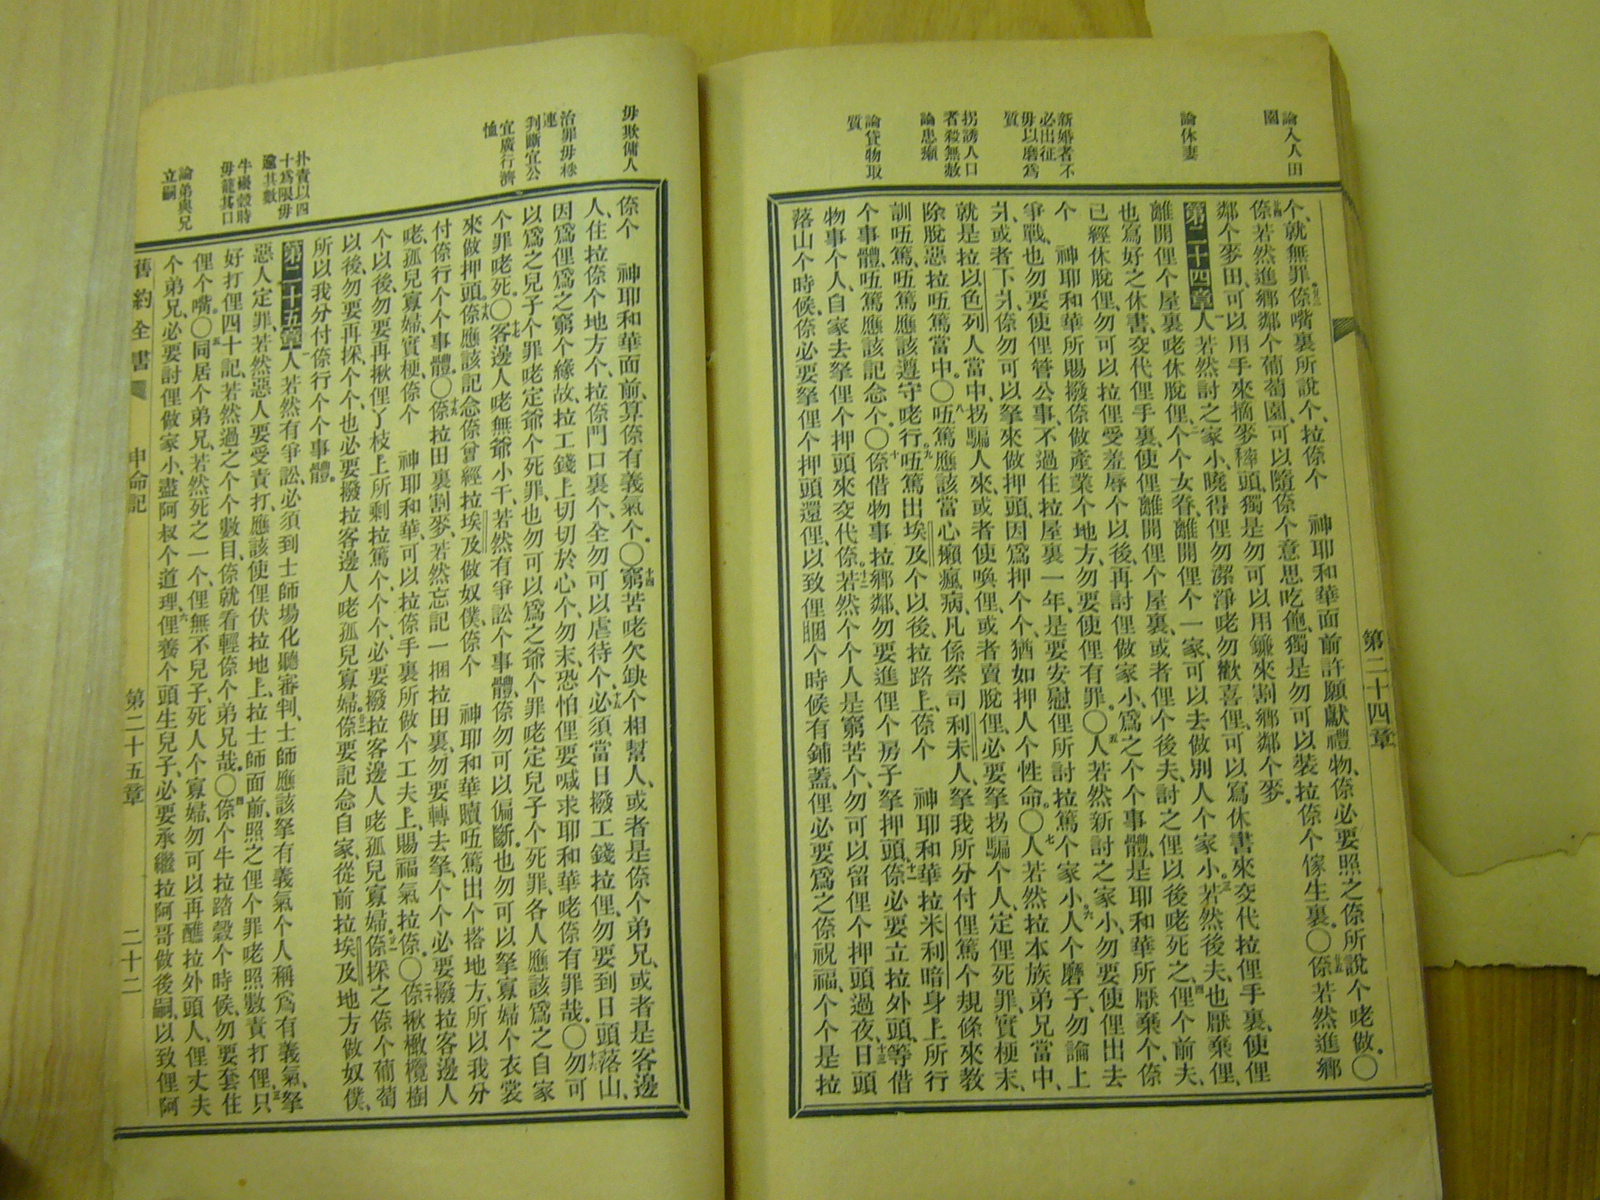 論入人田
園
論休妻
新婚者不
必出征
毋以磨爲
質
拐誘人口
者殺無赦
論患癩
論貸物取
質
第二十四章
个、就無罪、倷嘴裏所說个、拉倷个 神耶和華面前許願獻禮物、倷必要照之倷所說个咾做。〇
倷若然進鄉鄰个葡萄園、可以隨倷个意思吃飽、獨是勿可以裝拉倷个傢生裏。〇倷若然進鄉
鄰个麥田、可以用手來摘麥穗頭、獨是勿可以用鐮來割鄉鄰个麥。
第二十四章 人若然討之家小、曉得俚勿潔淨咾勿歡喜俚、可以寫休書來交代拉俚手裏、使俚
離開俚个屋裏咾休脫俚、个个女眷、離開俚个一家、可以去做別人个家小。若然後夫、也厭棄俚、
也寫好之休書、交代俚手裏、使俚離開俚个屋裏、或者俚个後夫、討之俚以後咾死之、俚个前夫、
已經休脫俚、勿可以拉俚受羞辱个以後、再討俚做家小、爲之个个事體、是耶和華所厭棄个、倷
个 神耶和華所賜撥倷做產業个地方、勿要使俚有罪。〇人若然新討之家小、勿要使俚出去
爭戰、也勿要使俚管公事、不過住拉屋裏一年、是要安慰俚所討拉篤个家小。人个磨子、勿論上
爿、或者下爿、倷勿可以拏來做押頭、因爲押个个、猶如押人个性命。〇人若然拉本族弟兄當中、
就是拉以色列人當中、拐騙人來、或者使喚俚、或者賣脫俚、必要拏拐騙个人、定俚死罪、實梗末、
除脫惡拉㕶篤當中。〇㕶篤應該當心癩瘋病、凡係祭司利未人、拏我所分付俚篤个規條來敎
訓㕶篤、㕶篤應該遵守咾行。㕶篤出埃及个以後、拉路上、倷个 神耶和華拉米利暗身上所行
个事體、㕶篤應該記念个。〇倷借物事拉鄉鄰、勿要進俚个房子拏押頭、倷必要立拉外頭、等借
物事个人、自家去拏俚个押頭來交代倷、若然个个人是窮苦个、勿可以留俚个押頭過夜、日頭
落山个時候、倷必要拏俚个押頭還俚、以致俚睏个時候有鋪蓋、俚必要爲之倷祝福、个个是拉
毋欺傭人
治罪毋株
連
判斷宜公
宜廣行濟
恤
扑責以四
十爲限毋
逾其數
牛碾穀時
毋籠其口
論弟與兄
立嗣
倷个 神耶和華面前、算倷有義氣个。〇窮苦咾欠缺个相幫人、或者是倷个弟兄、或者是客邊
人、住拉倷个地方个、拉倷門口裏个、全勿可以虐待个、必須當日撥工錢拉俚、勿要到日頭落山、
因爲俚爲之窮个緣故、拉工錢上切切於心个、勿末、恐怕俚要喊求耶和華咾倷有罪哉。〇勿可
以爲之兒子个罪咾定爺个死罪、也勿可以爲之爺个罪咾定兒子个死罪、各人應該爲之自家
个罪咾死。〇客邊人咾無爺小干、若然有爭訟个事體、倷勿可以偏斷、也勿可以拏寡婦个衣裳
來做押頭、倷應該記念倷曾經拉埃及做奴僕、倷个 神耶和華贖㕶篤出个搭地方、所以我分
付倷行个个事體。〇倷拉田裏割麥、若然忘記一捆拉田裏、勿要轉去拏、个个必要撥拉客邊人
咾、孤兒寡婦、實梗、倷个 神耶和華、可以拉倷手裏所做个工夫上、賜福氣拉倷。〇倷揪橄欖樹
个以後、勿要再揪俚丫枝上所剩拉篤个、个个必要撥拉客邊人咾孤兒寡婦。倷採之倷个葡萄
以後、勿要再採个个、也必要撥拉客邊人咾孤兒寡婦。倷要記念自家、從前拉埃及地方做奴僕、
所以我分付倷行个个事體。
第二十五章 人若然有爭訟、必須到士師場化聽審判、士師應該拏有義氣个人稱爲有義氣、拏
惡人定罪、若然惡人要受責打、應該使俚伏拉地上、拉士師面前、照之俚个罪咾照數責打俚、只
好打俚四十記、若然過之个个數目、倷就看輕倷个弟兄哉。〇倷个牛拉踏穀个時候、勿要套住
俚个嘴。〇同居个弟兄、若然死之一个、俚無不兒子、死人个寡婦、勿可以再醮拉外頭人、俚丈夫
个弟兄、必要討俚做家小、盡阿叔个道理、俚養个頭生兒子、必要承繼拉阿哥做後嗣、以致俚阿
舊約全書 申命記 第二十五章 二十二